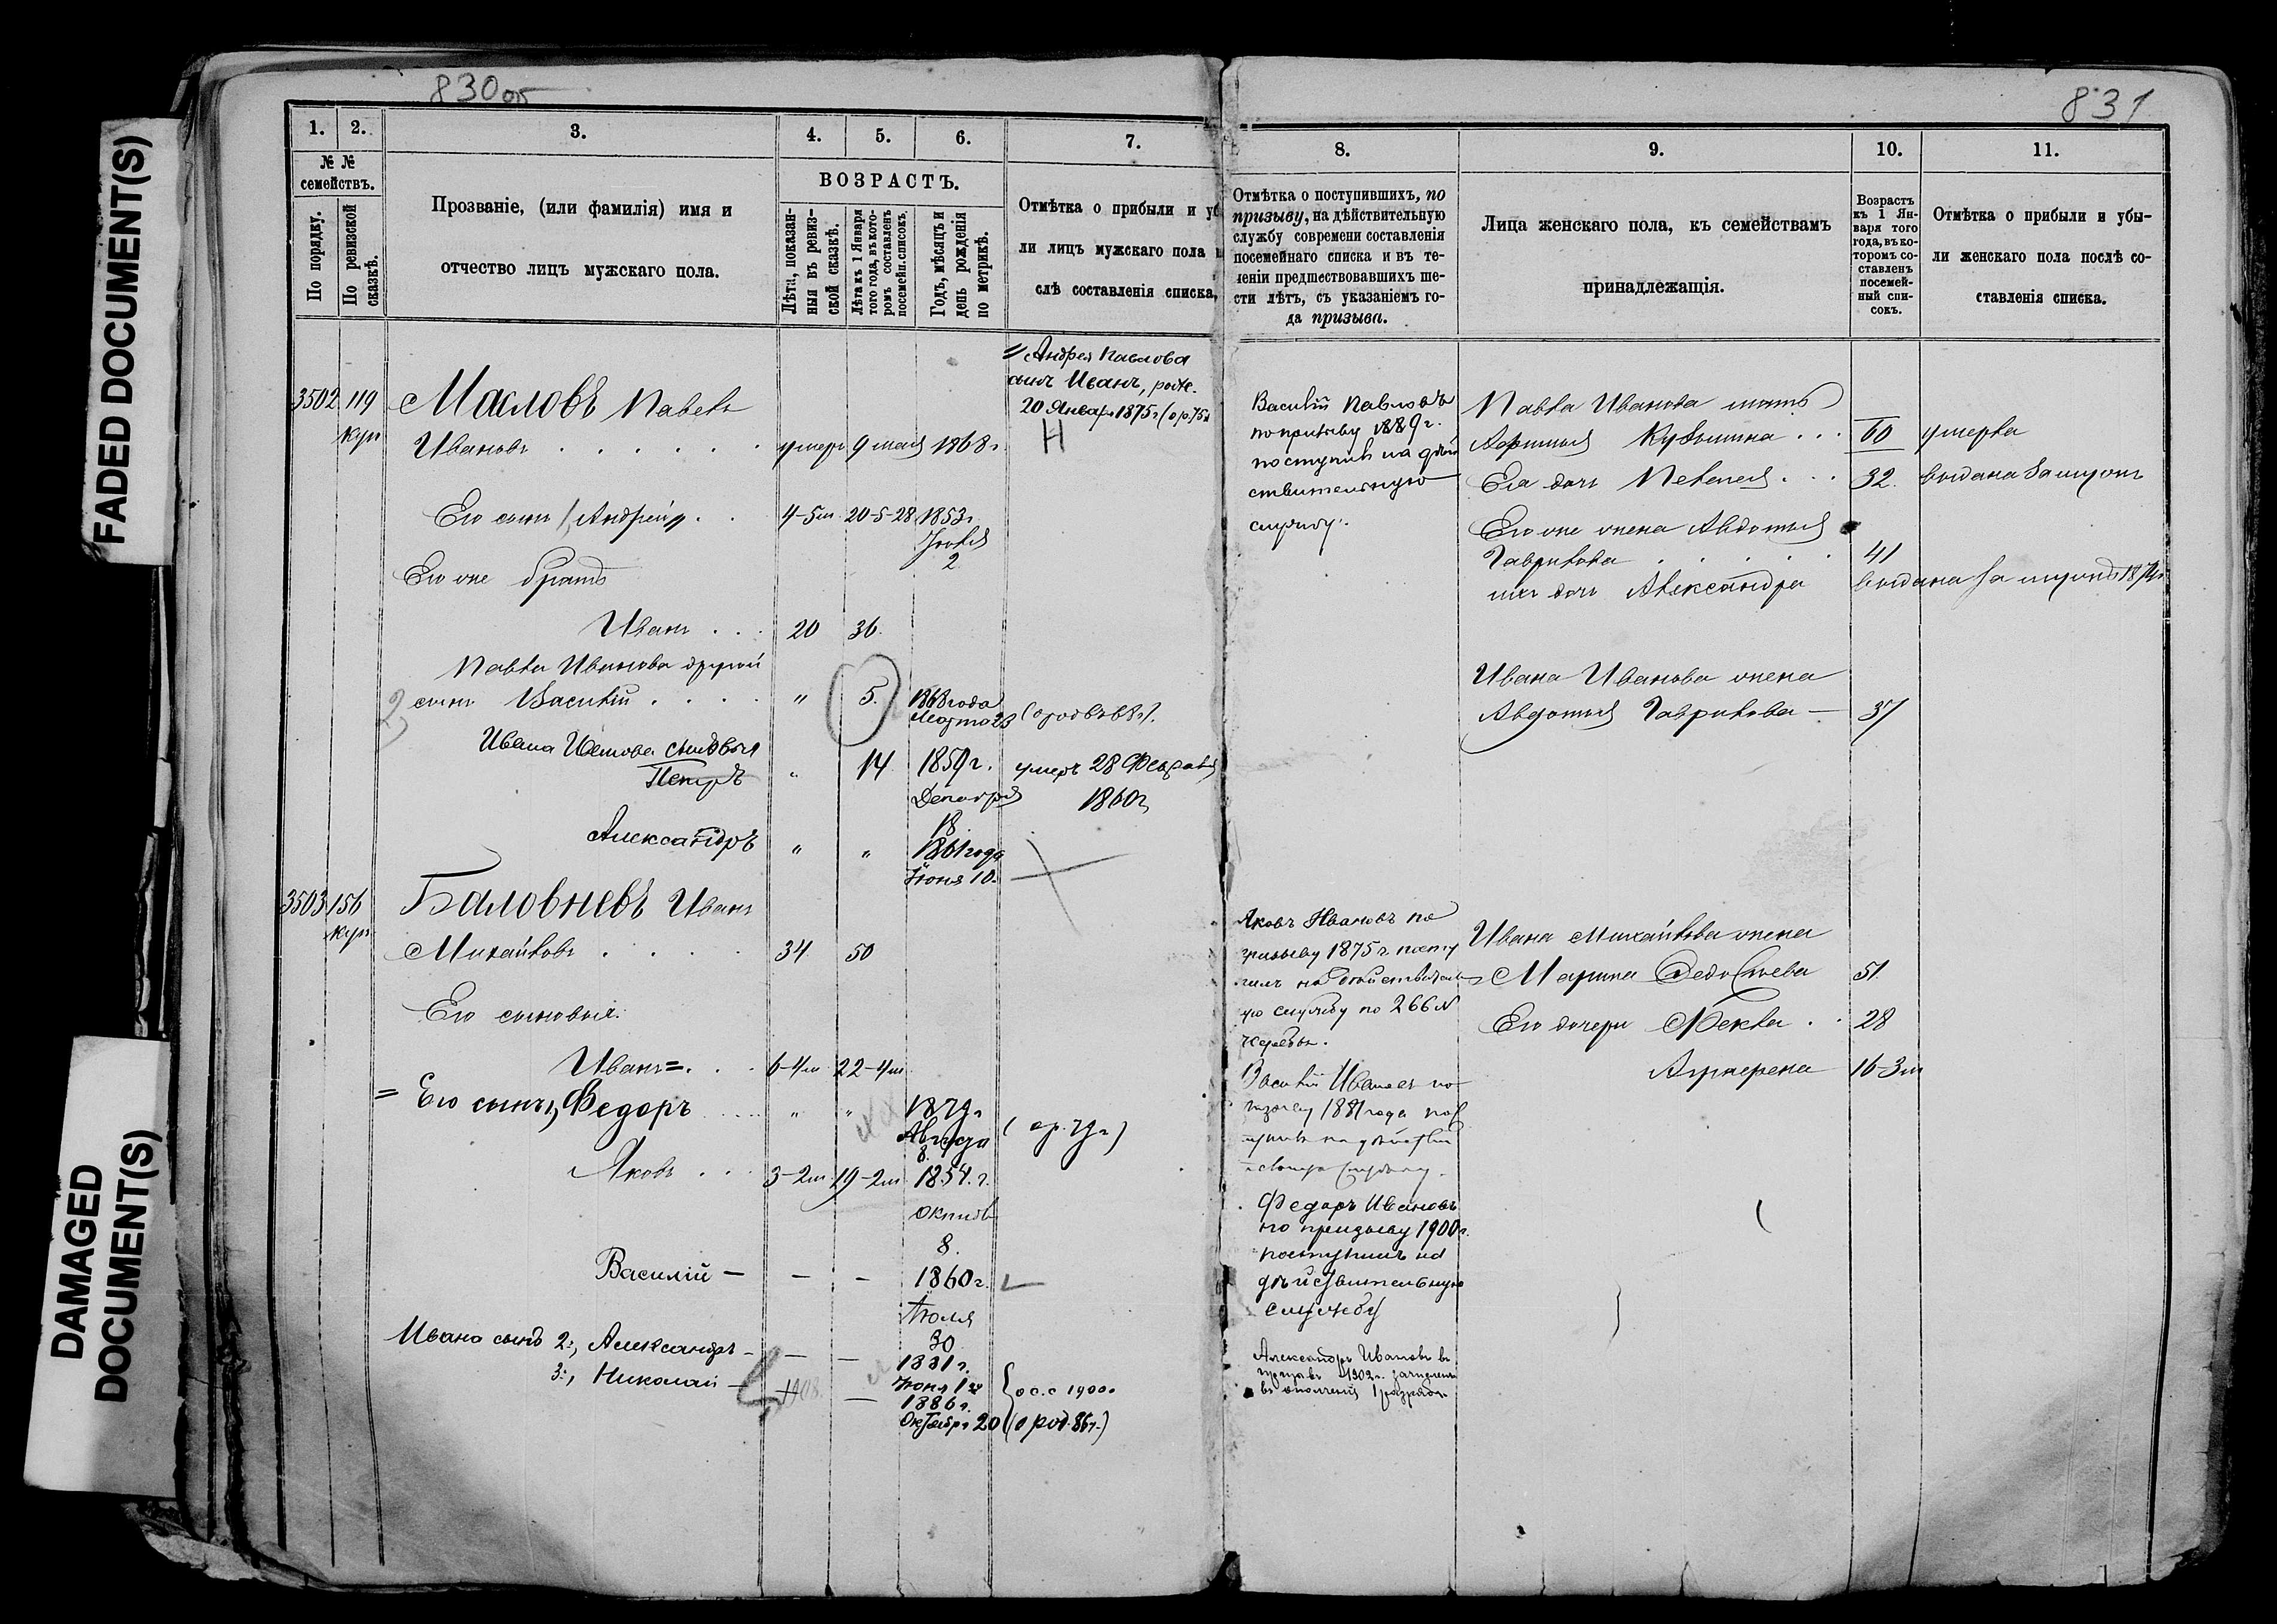 FADED DOCUMENT(S)
DAMAGED
DOCUMENT(S)
830 об
1.
2.
3.
4.
5.
6.
7.
№ №
семействъ.
По порядку.
По ревизской
сказкѣ.
Прозваніе, (или фамилія) имя и
отчество лицъ мужскаго пола.
ВОЗРАСТЪ.
Лѣта, показан-
ныя въ ревиз-
ской сказкѣ.
Лѣта къ 1 Января
того года, въ кото-
ромъ составленъ
посемейн. списокъ.
Годъ, мѣсяцъ и
день рожденія
по метрикѣ.
Отмѣтка о прибыли и уб
ли лицъ мужскаго пола
слѣ составленія списка.
Андрея Павлова
сынъ Иванъ,
20 Январ. 1875 г.
3502 119
куп
Масловъ Павелъ
Ивановъ
умеръ 9 мая 1868 г.
Н
Его сынъ Андрей
4-5м 20-5-28 1853 г.
Іюля
2
Его же братъ
Иванъ
20 36
Павла Иванова другой
2
сынъ Василій
" 5. 1868 года
Марта 23
Ивана Иванова сыновья
Петръ
" 14 1859 г. умеръ 28 Февраля
Декабря 1860 г.
18
Александръ
" " 1861 года
Іюня 10.
3503 156
куп
Баловневъ Иванъ
Михайловъ
34 50
Его сыновья:
Иванъ =
6-4м 22-4м
= Его сынъ 1, Федоръ
" " 1879 г.
Августа
8
Яковъ
3-2м 19-2м 1854. г.
октяб
8.
Василій —
— — 1860 г.
Іюля
30
Ивана сынъ 2:, Александръ —
— — 1881 г.
3:, Николай —
1908. — 1886 г.
Октября 20 (о род. 86 г.)
831
8.
9.
10.
11.
Отмѣтка о поступившихъ, по
призыву, на дѣйствительную
службу современи составленія
посемейнаго списка и въ те-
ченіи предшествовавшихъ ше-
сти лѣтъ, съ указаніемъ го-
да призыва.
Лица женскаго пола, къ семействамъ
принадлежащія.
Возрастъ
къ 1 Ян-
варя того
года, въ ко-
торомъ со-
ставленъ
посемей-
ный спи-
сокъ.
Отмѣтка о прибыли и убы-
ли женскаго пола послѣ со-
ставленія списка.
Василій Павловъ
по призыву 1889 г.
поступилъ на дѣй
ствительную
службу.
Павла Иванова мать
Афимья Кузьмина
60 умерла
Его дочь Пелагея
32. выдана замужъ
Его же жена Авдотья
Гаврилова
41
ихъ дочь Александра
выдана за мужъ
Ивана Иванова жена
Авдотья Гаврилова —
37
Яковъ Ивановъ по
призыву 1875 г. посту
пилъ на дѣйствитель
ую службу по 266 №
жеребья.
Ивана Михайлова жена
Марина Федосѣева
51.
Его дочери Фекла
28
Агрипена
16-3м
Василій Ивановъ по
призыву 1881 года пос
тупилъ на дѣйстви
Федоръ Ивановъ
по призыву 1900 г.
поступилъ на
дѣйствительную
службу
Александръ Ивановъ въ
1902 г. зачисленъ
въ ополченіе 1 разряда